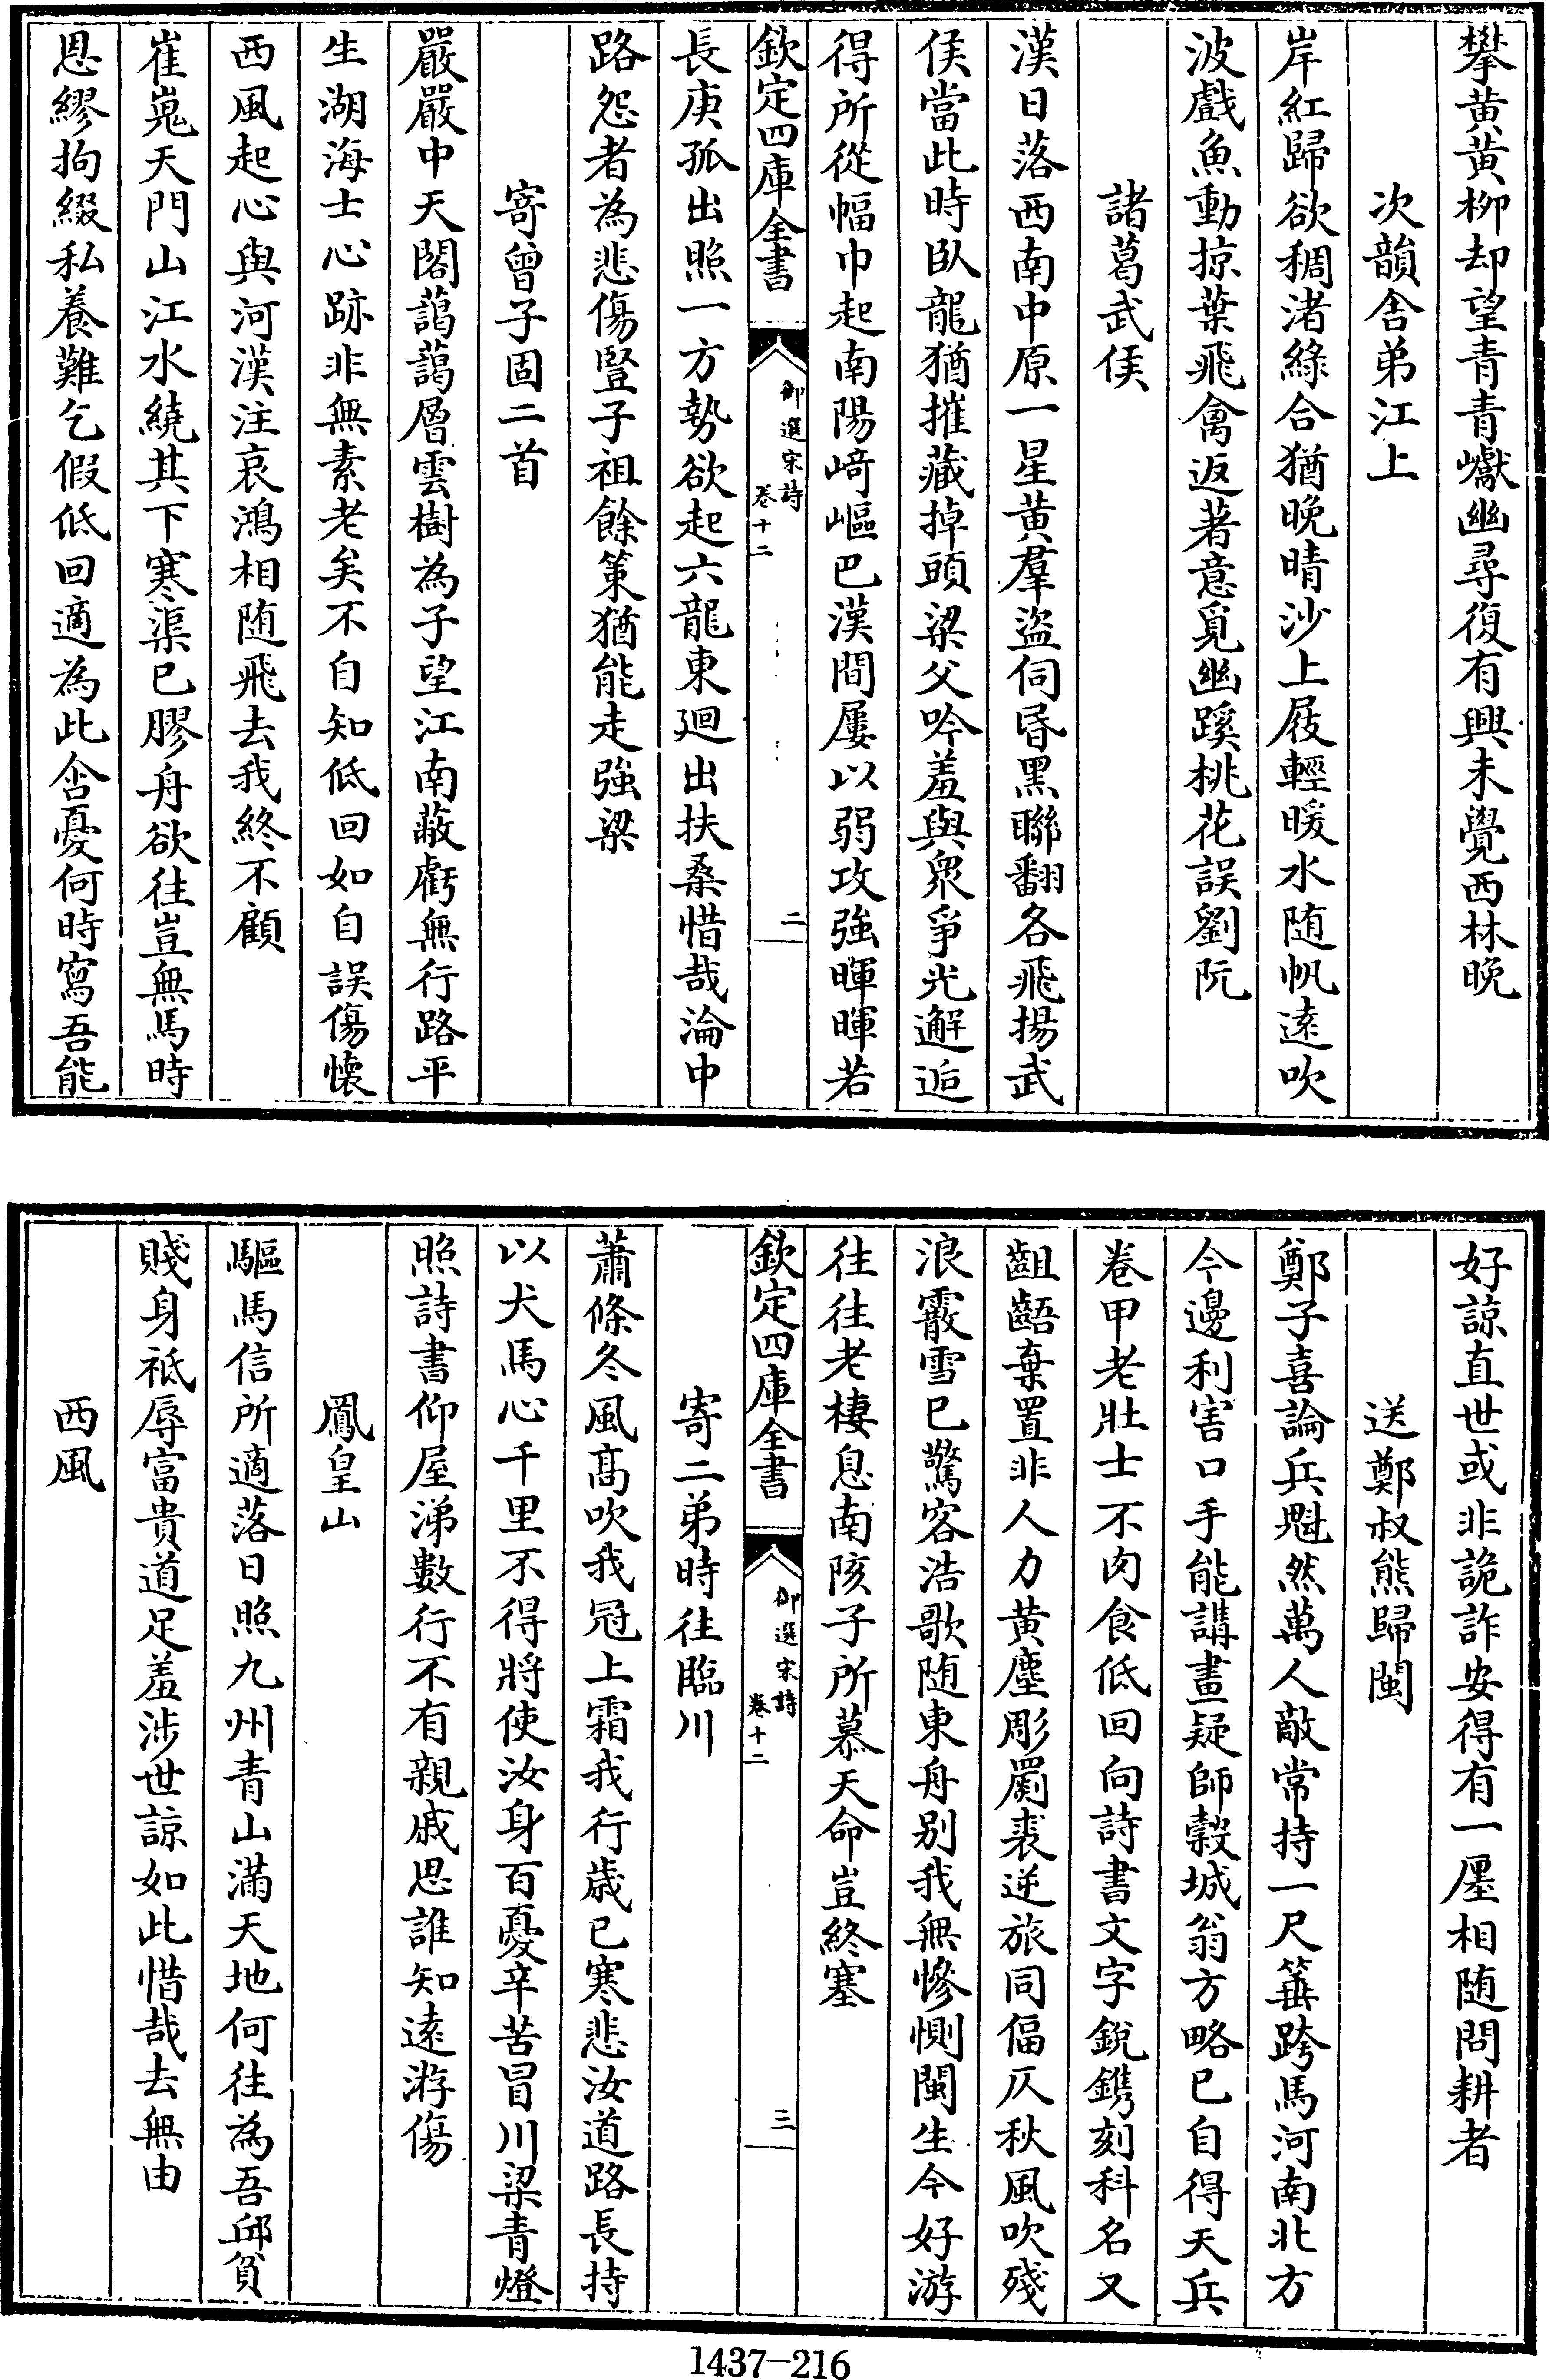 攀黄黄柳却望青青巘幽尋復有興未覺西林晚
次韻舍弟江上
岸紅歸欲稠渚綠合猶晚晴沙上屐輕暖水随帆遠吹
波戲魚動掠葉飛禽返著意覓幽蹊桃花誤劉阮
諸葛武侯
漢日落西南中原一星黄羣盜伺昏黑聯翻各飛揚武
侯當此時臥龍猶摧藏掉頭梁父吟羞與衆爭光邂逅
得所從幅巾起南陽﨑嶇巴漢間屢以弱攻強暉暉若
欽定四庫全書
御選宋詩
卷十二
二
長庚孤出照一方勢欲起六龍東廻出扶桑惜哉淪中
路怨者為悲傷豎子祖餘策猶能走強梁
寄曾子固二首
嚴嚴中天閣藹藹層雲樹為子望江南蔽虧無行路平
生湖海士心跡非無素老矣不自知低回如自誤傷懷
西風起心與河漢注哀鴻相随飛去我終不顧
崔嵬天門山江水繞其下寒渠已膠舟欲往豈無馬時
恩繆拘綴私養難乞假低回適為此含憂何時寫吾能
好諒直世或非詭詐安得有一廛相随問耕者
送鄭叔熊歸閩
鄭子喜論兵魁然萬人敵常持一尺箠跨馬河南北方
今邊利害口手能講畫疑師榖城翁方略已自得天兵
卷甲老壯士不肉食低回向詩書文字銳鐫刻科名又
齟齬棄置非人力黄塵彫罽裘逆旅同偪仄秋風吹殘
浪霰雪已驚客浩歌随東舟别我無慘惻閩生今好游
往往老棲息南陔子所慕天命豈終塞
欽定四庫全書
御選宋詩
卷十二
三
寄二弟時往臨川
蕭條冬風髙吹我冠上霜我行歳已寒悲汝道路長持
以犬馬心千里不得將使汝身百憂辛苦冒川梁青燈
照詩書仰屋涕數行不有親戚思誰知遠游傷
鳳皇山
驅馬信所適落日照九州青山滿天地何往為吾邱貧
賤身祗辱富貴道足羞涉世諒如此惜哉去無由
西風
1437-216